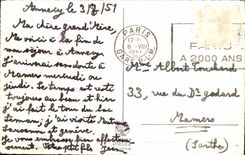 Annecy le 3/8/51
Ma chère grand'Mère
Me voici à la fin de
mon séjour à Annecy
J'arriverai vendredi à
Mamers mercredi ou
jeudi. Le temps est
toujours au beau
j'ai fait le tour du lac
Léman, j'ai visité
Lausanne et genève.
Je vous embrasse bien
Votre petit fils Jean
PARIS
6-VIII
1951
GARE
PARIS
A 2000 ANS
Mme Albert Touchard
33, rue du Dr godard
Mamers
(Sarthe)